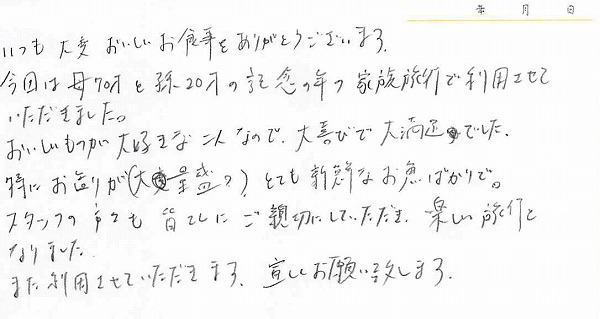 年 月 日
いつも大変おいしいお食事をありがとうございます。
今回は母70才と孫20才の記念の年の家族旅行で利用させて
いただきました。
おいしいものが大好きな二人なので、大喜びで大満足でした。
特にお造りが(大量盛?)とても新鮮なお魚ばかりで。
スタッフの方々も皆でしにご親切にしていただき、楽しい旅行と
なりました。
また利用させていただきます。宜しくお願い致します。